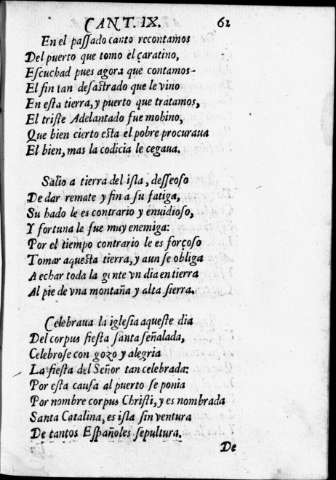 CANT. IX. 62
En el passado canto recontamos
Del puerto que tomo el çaratino,
Escuchad pues agora que contamos
El fin tan desastrado que le vino
En esta tierra, y puerto que tratamos,
El triste Adelantado fue mohino,
Que bien cierto esta el pobre procuraua
El bien, mas la codicia le cegaua.
Salio a tierra del isla, desseoso
De dar remate y fin a su fatiga,
Su hado le es contrario y enuidioso,
Y fortuna le fue muy enemiga:
Por el tiempo contrario le es forçoso
Tomar aquesta tierra, y aun se obliga
A echar toda la gente vn dia en tierra
Al pie de vna montaña y alta sierra.
Celebraua la iglesia aqueste dia
Del corpus fiesta santa señalada,
Celebrose con gozo y alegria
La fiesta del Señor tan celebrada:
Por esta causa al puerto se ponia
Por nombre corpus Christi, y es nombrada
Santa Catalina, es isla sin ventura
De tantos Españoles sepultura.
De